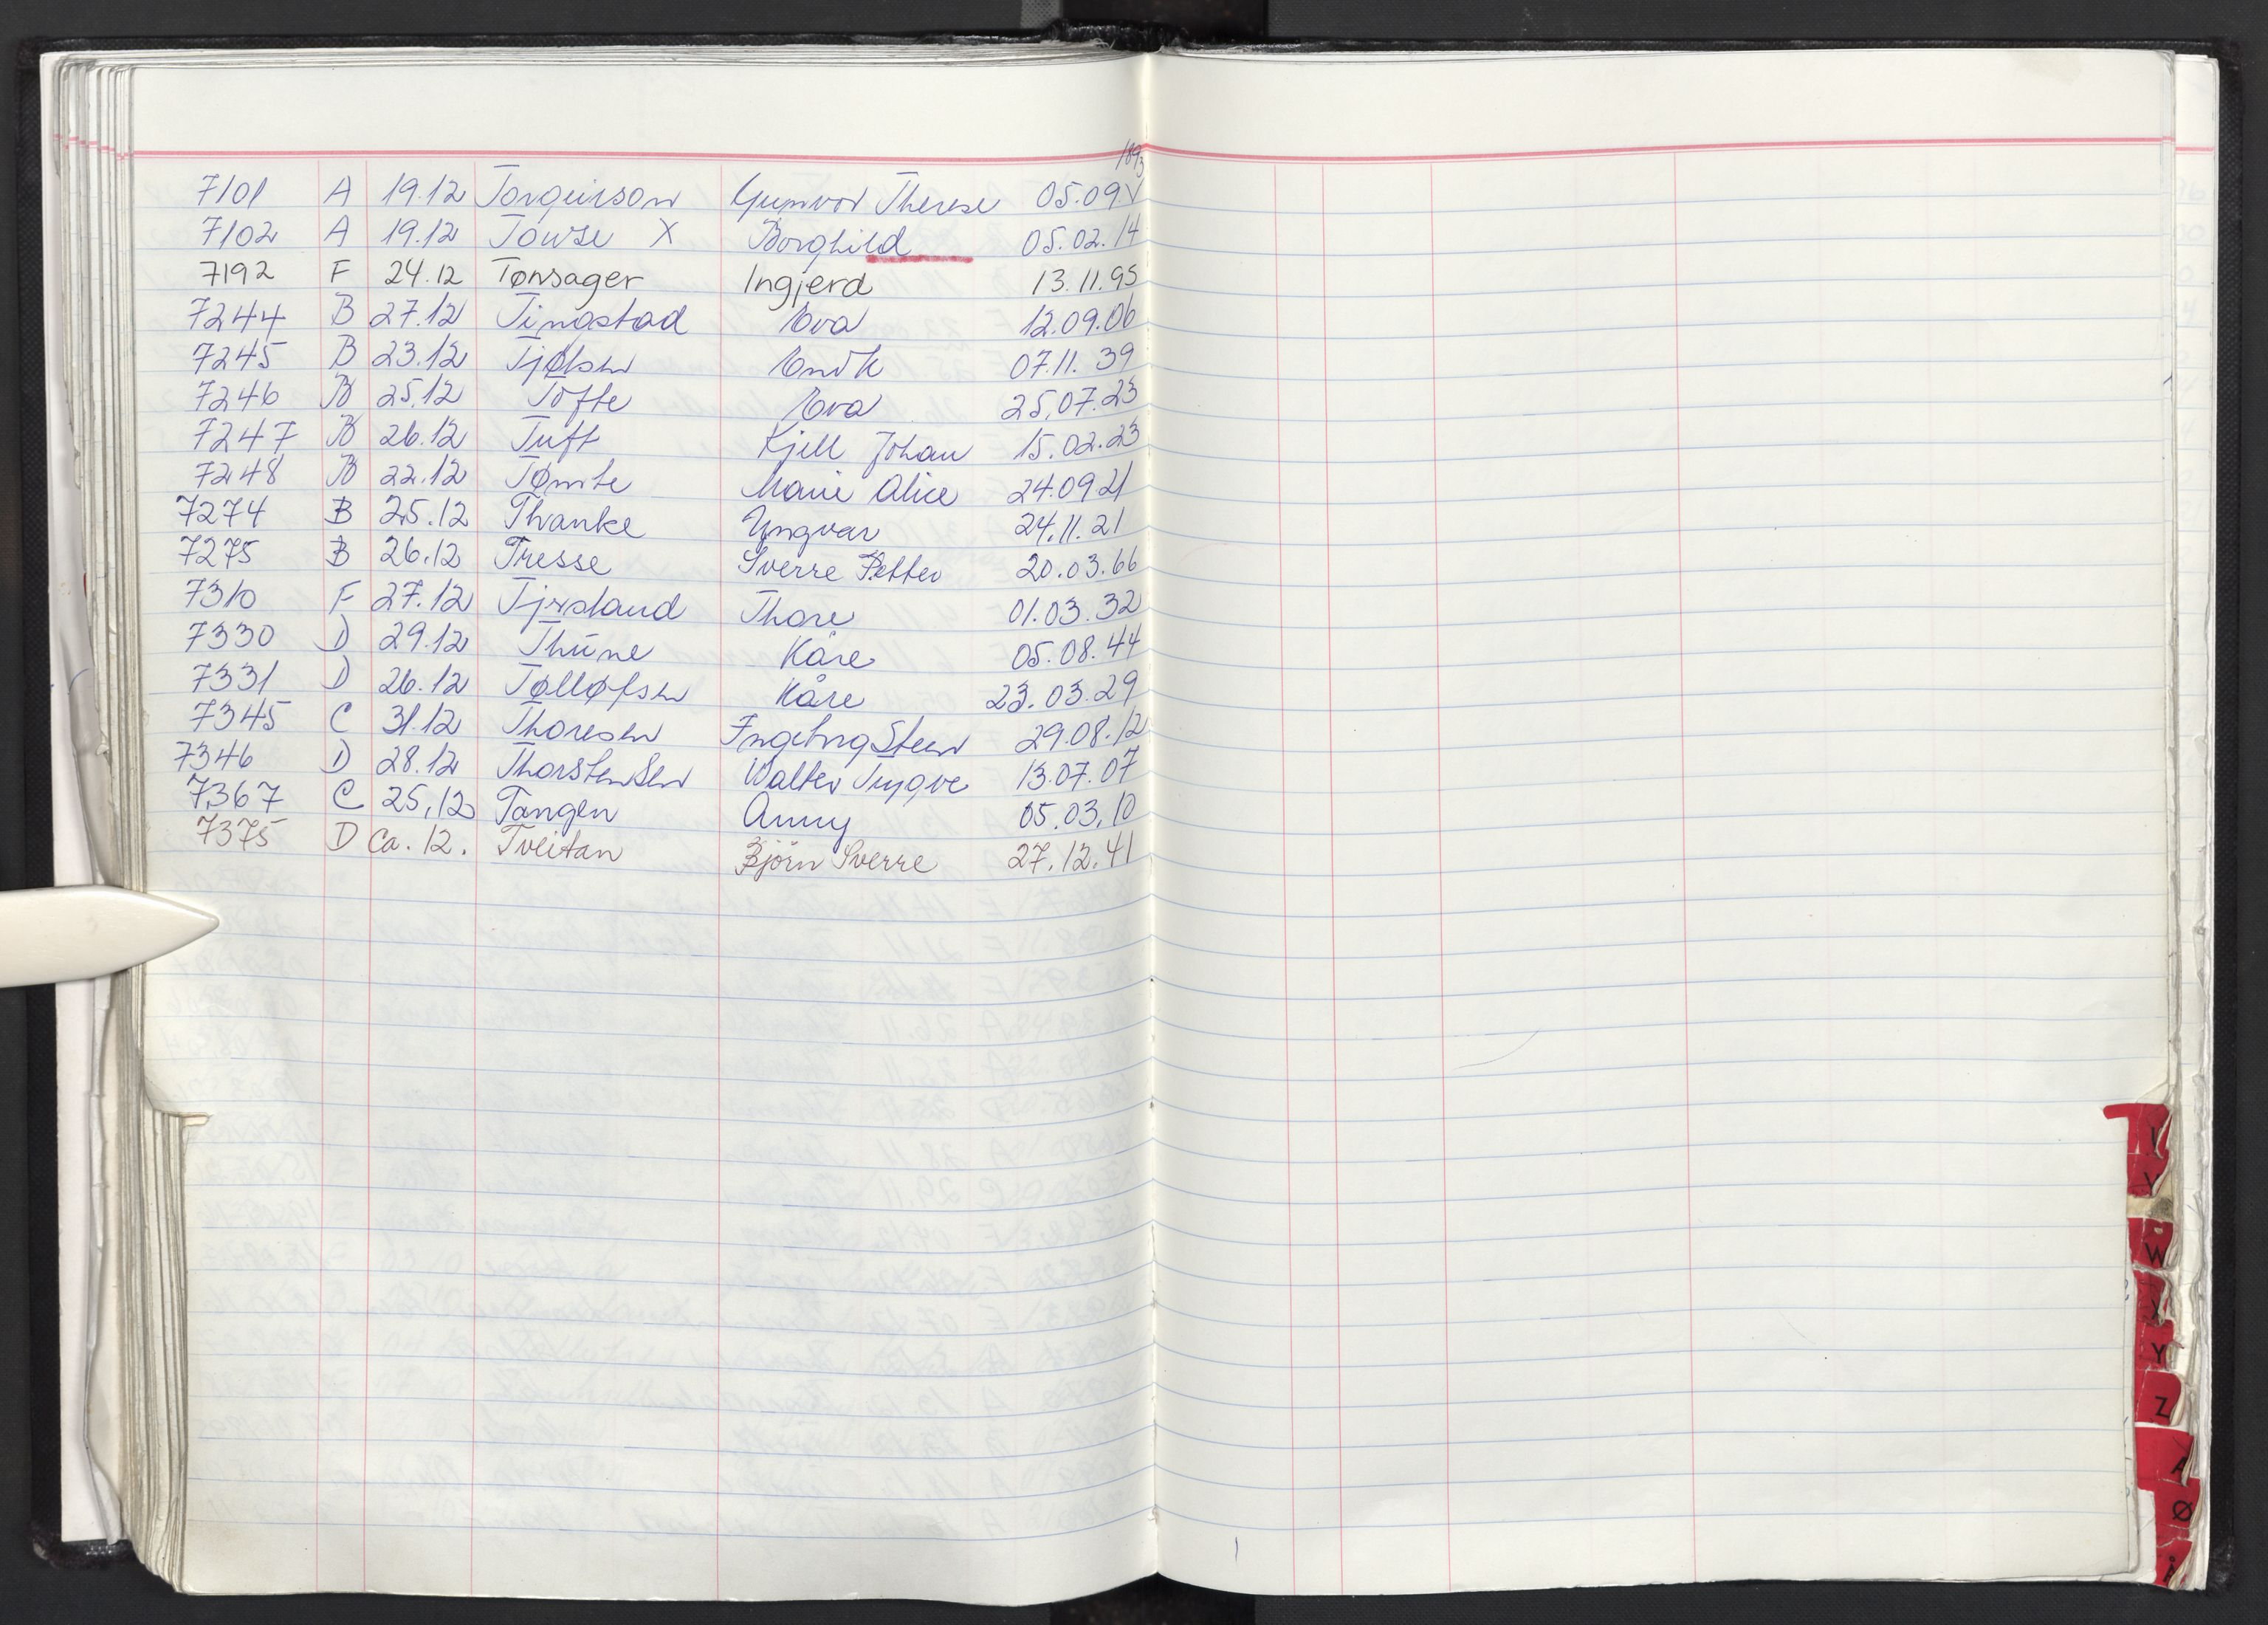 1893
7101 A 19.12 Torgeirson Gunvor Therese 05.09.V
7102 A 19.12 Towse X Borghild 05.02.14
7192 F 24.12 Tønsager Ingjerd 13.11.95
7244 B 27.12 Tingstad Eva 12.09.06
7245 B 23.12 Tjølsen 07.11.39
7246 B 25.12 Tofte Eva 25.07.23
7247 B 26.12 Tuft Kjell Johan 15.02.23
7248 B 22.12 Tømte Marie Alice 24.09 21
7274 B 25.12 Thranke Yngvar 24.11.21
7275 B 26.12 Tresse Sverre Petter 20.03.66
7310 F 27.12 Thore 01.03.32
7330 D 29.12 Thune Kåre 05.08.44
7331 D 26.12 Tølløfsen Kåre 23.03.29
7345 C 31.12 Thoresen Ingebrg Steen 29.08.12
7346 D 28.12 Thorstensen Walter Trygve 13.07.07
7367 C 25.12 Tangen Anny 05.03.10
7375 D ca. 12. Tveitan Björn Sverre 27.12.41
V
W
X
Y
Z
Ø